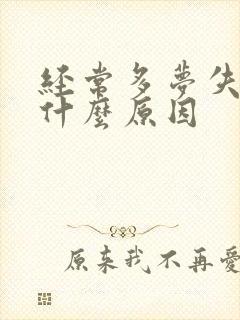 經常多夢失
什麼原因
原來我不再愛